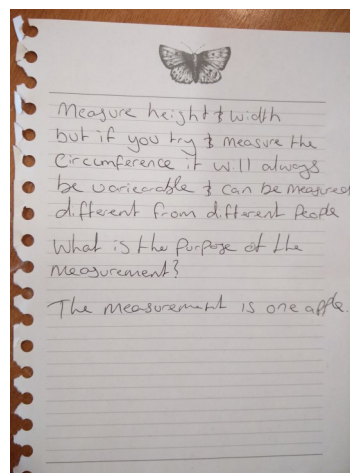 Measure height & width
but if you try & measure the
Circumference it will always
be varierable & can be measured
different from different People
What is the Purpose of the
Measurement?
The measurement is one apple.